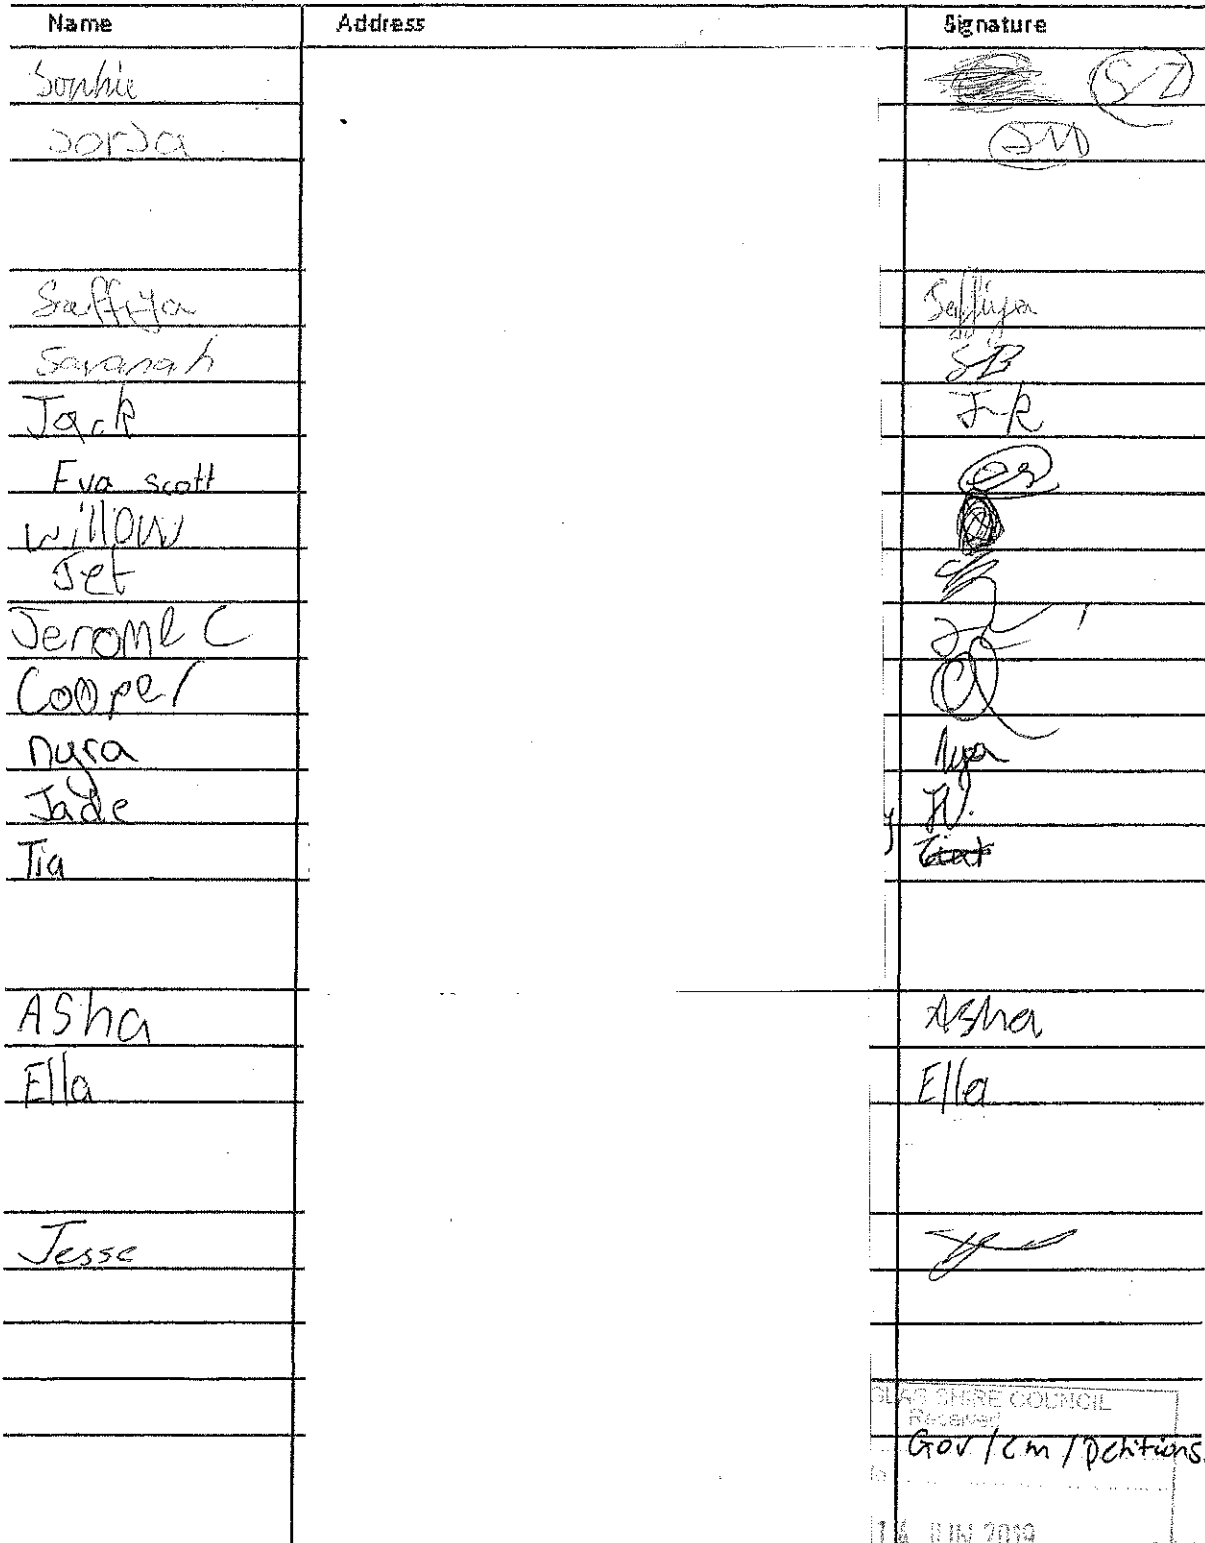 Name Address Signature
Sophie SZ
Sorja SM
Saffiya Saffiya
Savanah SB
Jack
Eva scott es
Willow
Jet
Jerome C
Cooper
nyra
Jade
Tia
ASha Asha
Ella Ella
Jesse
SHIRE COUNCIL
Received
Gov/cm/petitions.
14 JUN 2019